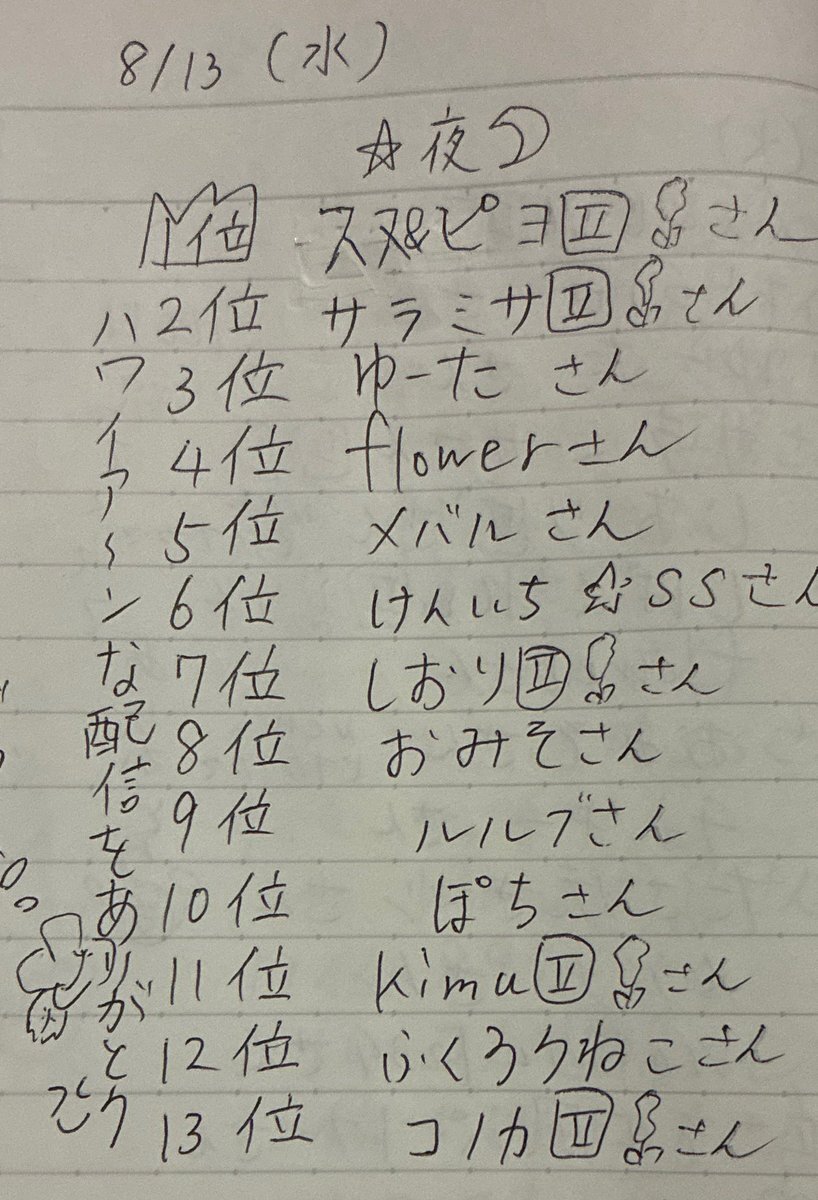 8/13 (水)
☆夜
1位 スヌ&ピヨ II さん
2位 サラミサ II さん
3位 ゆーた さん
4位 flowerさん
5位 メバル さん
6位 けんいち ☆SSさん
7位 しおり II さん
8位 おみそさん
9位 ルルブさん
10位 ぽちさん
11位 kimu II さん
12位 ふくろうねこさん
13位 コノカ II さん
ハワイア~ンな配信をありがとう